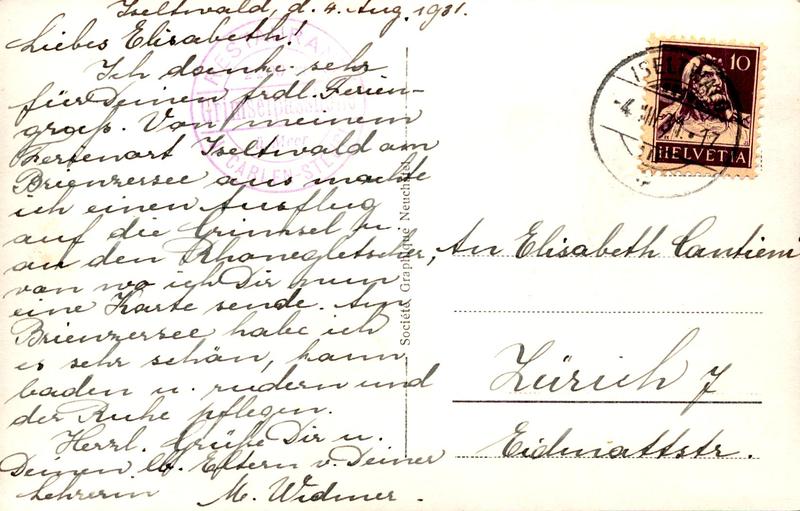 Iseltwald, d. 4. Aug. 1931.
Liebes Elisabeth!
Ich danke sehr
für Deinen frdl. Ferien-
gruß. Von meinem
Ferienort Iseltwald am
Brienzersee aus machte
ich einen Ausflug
auf die Grimsel u.
an den Rhonegletscher,
von wo ich Dir nun
eine Karte sende. Am
Brienzersee habe ich
es sehr schön, kann
baden u. rudern und
der Ruhe pflegen.
Herzl. Grüße Dir u.
Deinen lb. Eltern v. Deiner
Lehrerin M. Widmer.
RESTAURANT
Grimselpasshöhe
Meer
CARLEN-
Société Graphique Neuchatel
10
HELVETIA
ISELTWALD
-4.VIII.31.-17
An Elisabeth Cantieni
Zürich 7
Eidmattstr.